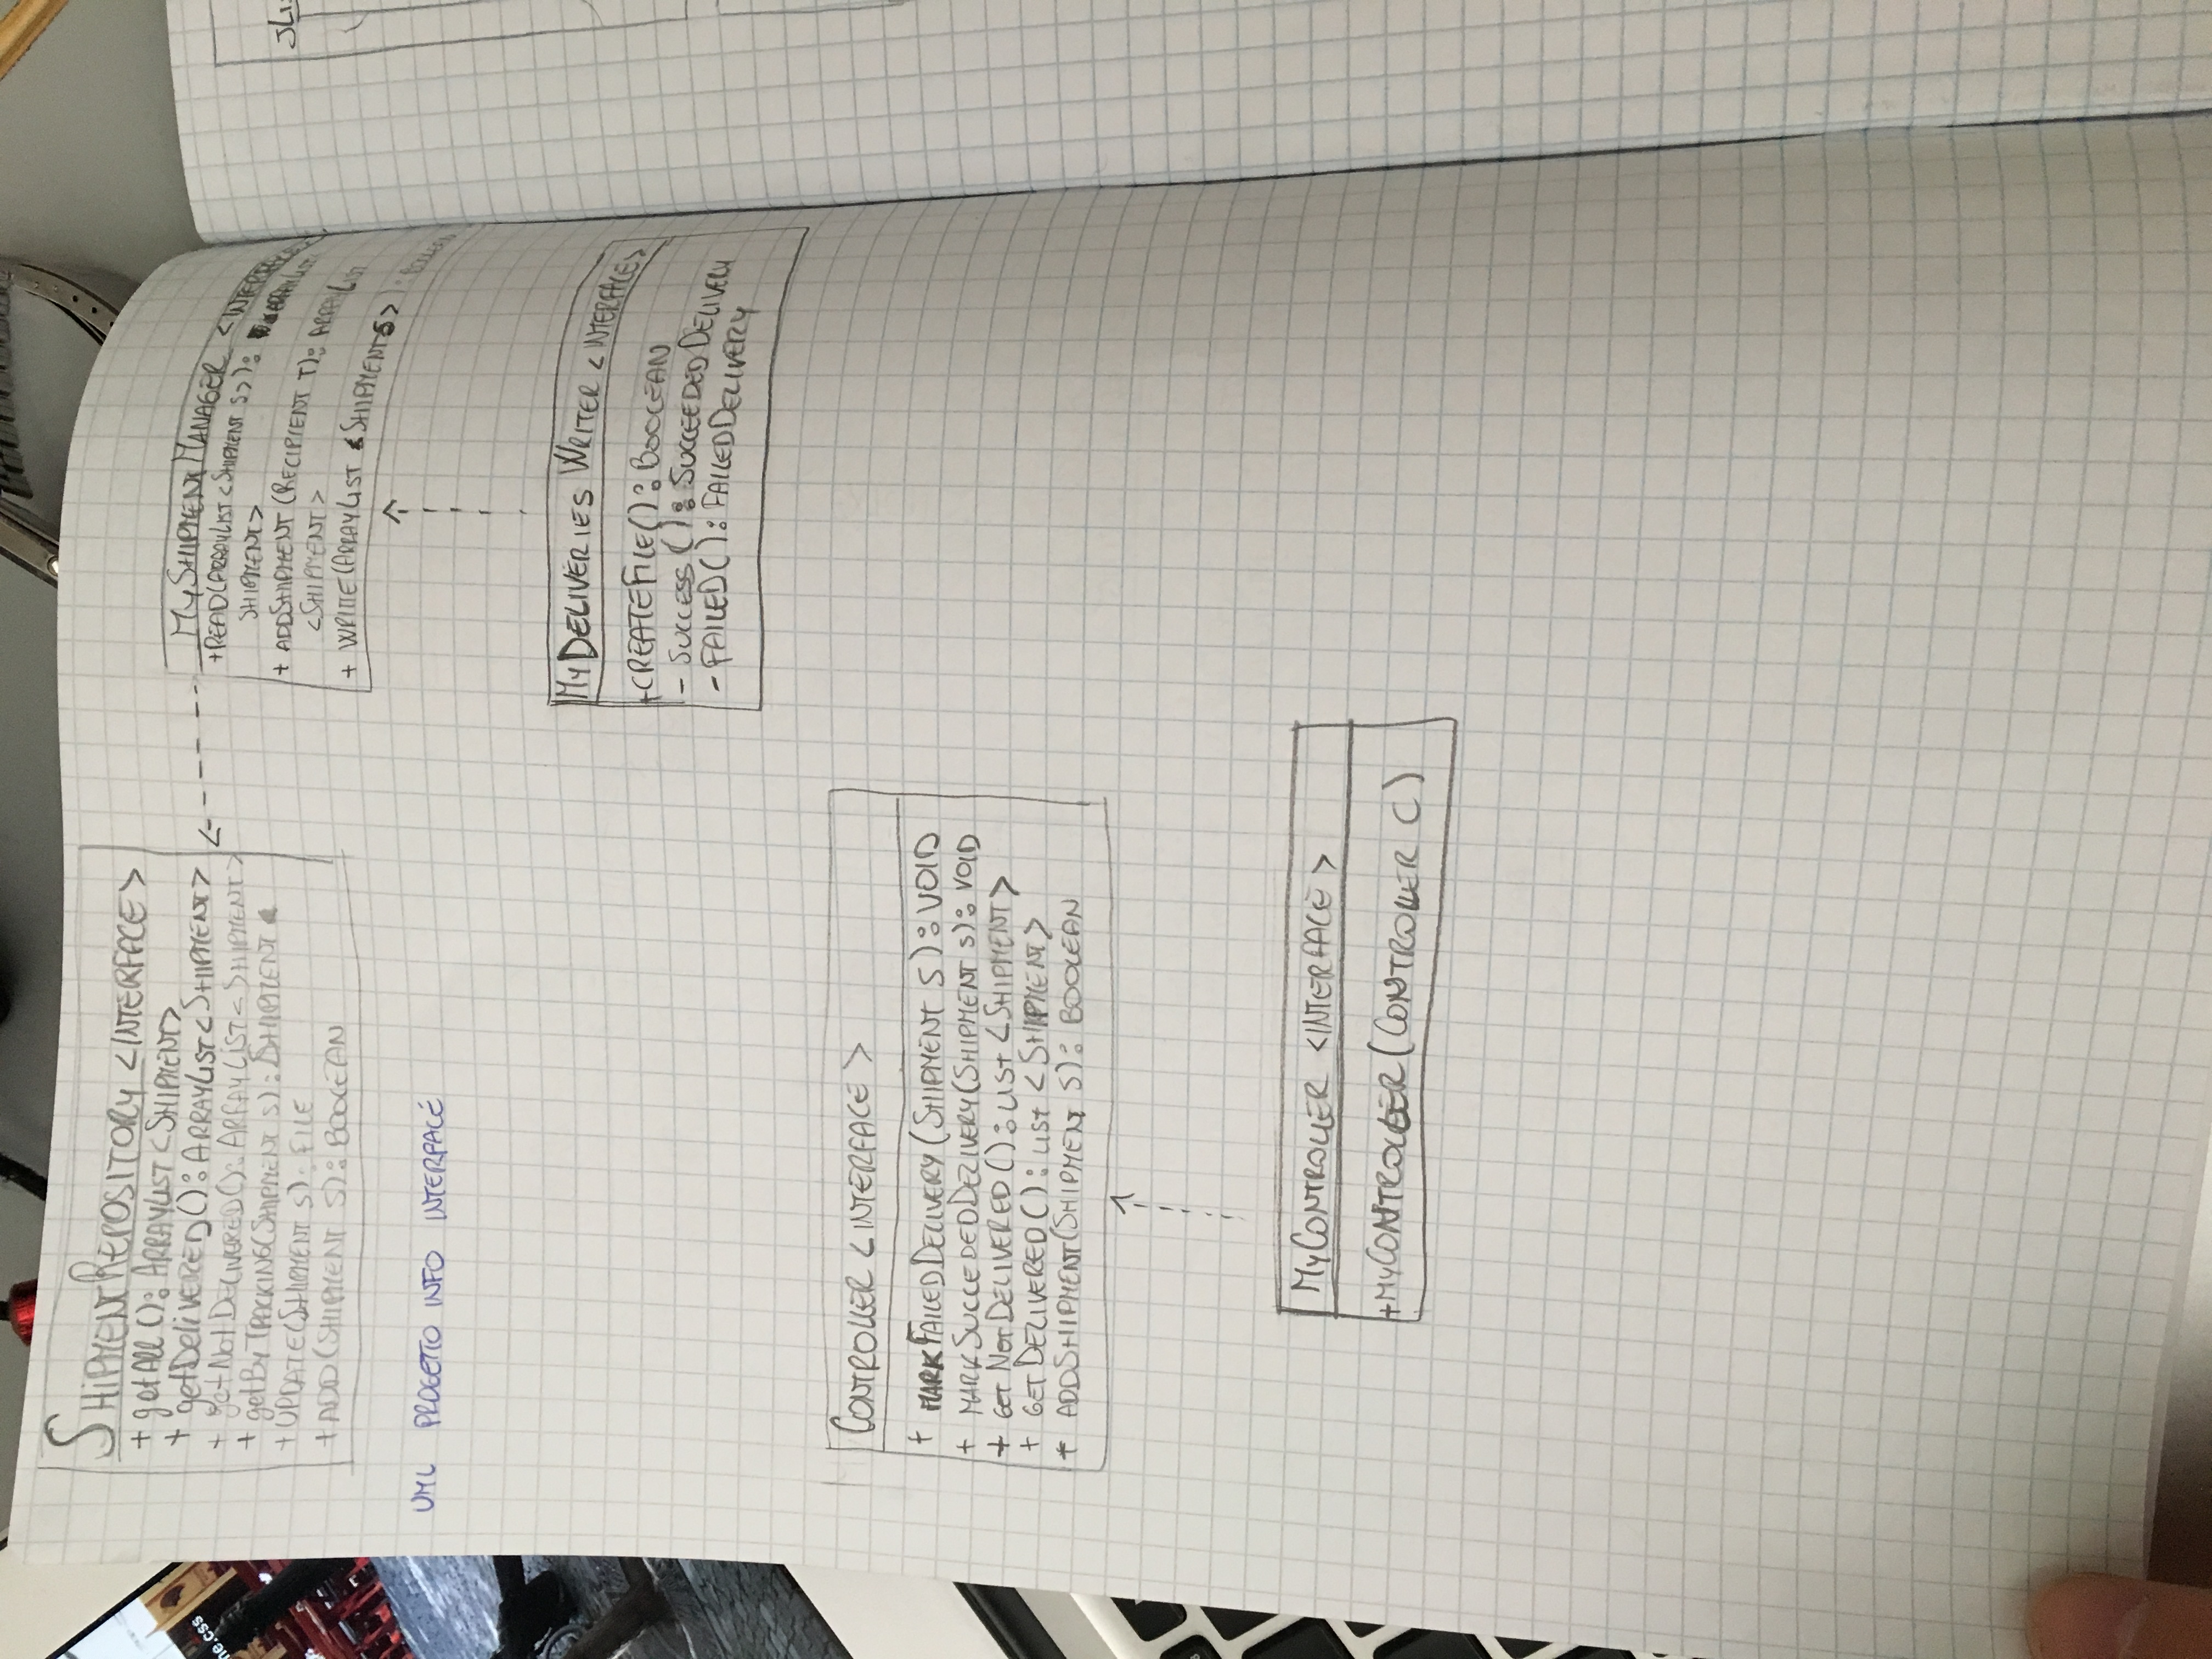 SHIPMENTREPOSITORY <INTERFACE>
+ getAll (): ARRAYLIST <SHIPMENT>
+ getDELIVERED(): ARRAYLIST <SHIPMENT>
+ getNotDELIVERED(): ARRAYLIST <SHIPMENT>
+ getByTRACKING(SHIPMENT S): SHIPMENT
+ UPDATE(SHIPMENT S): FILE
+ ADD (SHIPMENT S): BOOLEAN
MySHIPMENTMANAGER <INTERFACE>
+READ(ARRAYLIST <SHIPMENT S>): ARRAYLIST<
SHIPMENT>
+ ADDSHIPMENT (RECIPIENT T): ARRAYLIST
<SHIPMENT>
+ WRITE(ARRAYLIST <SHIPMENTS>): BOOLEAN
UML PROGETTO INFO INTERFACE
MyDELIVERIES WRITER <INTERFACE>
+CREATEFILE(): BOOLEAN
- SUCCESS(): SUCCEEDEDDELIVERY
- FAILED(): FAILEDDELIVERY
CONTROLLER <INTERFACE>
+ MARKFAILEDDELIVERY(SHIPMENT S): VOID
+ MARKSUCCEDEDDELIVERY(SHIPMENT S): VOID
+ GETNOTDELIVERED(): LIST <SHIPMENT>
+ GETDELIVERED(): LIST <SHIPMENT>
+ ADDSHIPMENT(SHIPMENT S): BOOLEAN
MyCONTROLLER <INTERFACE>
+MyCONTROLLER(CONTROLLER C)
ne.css